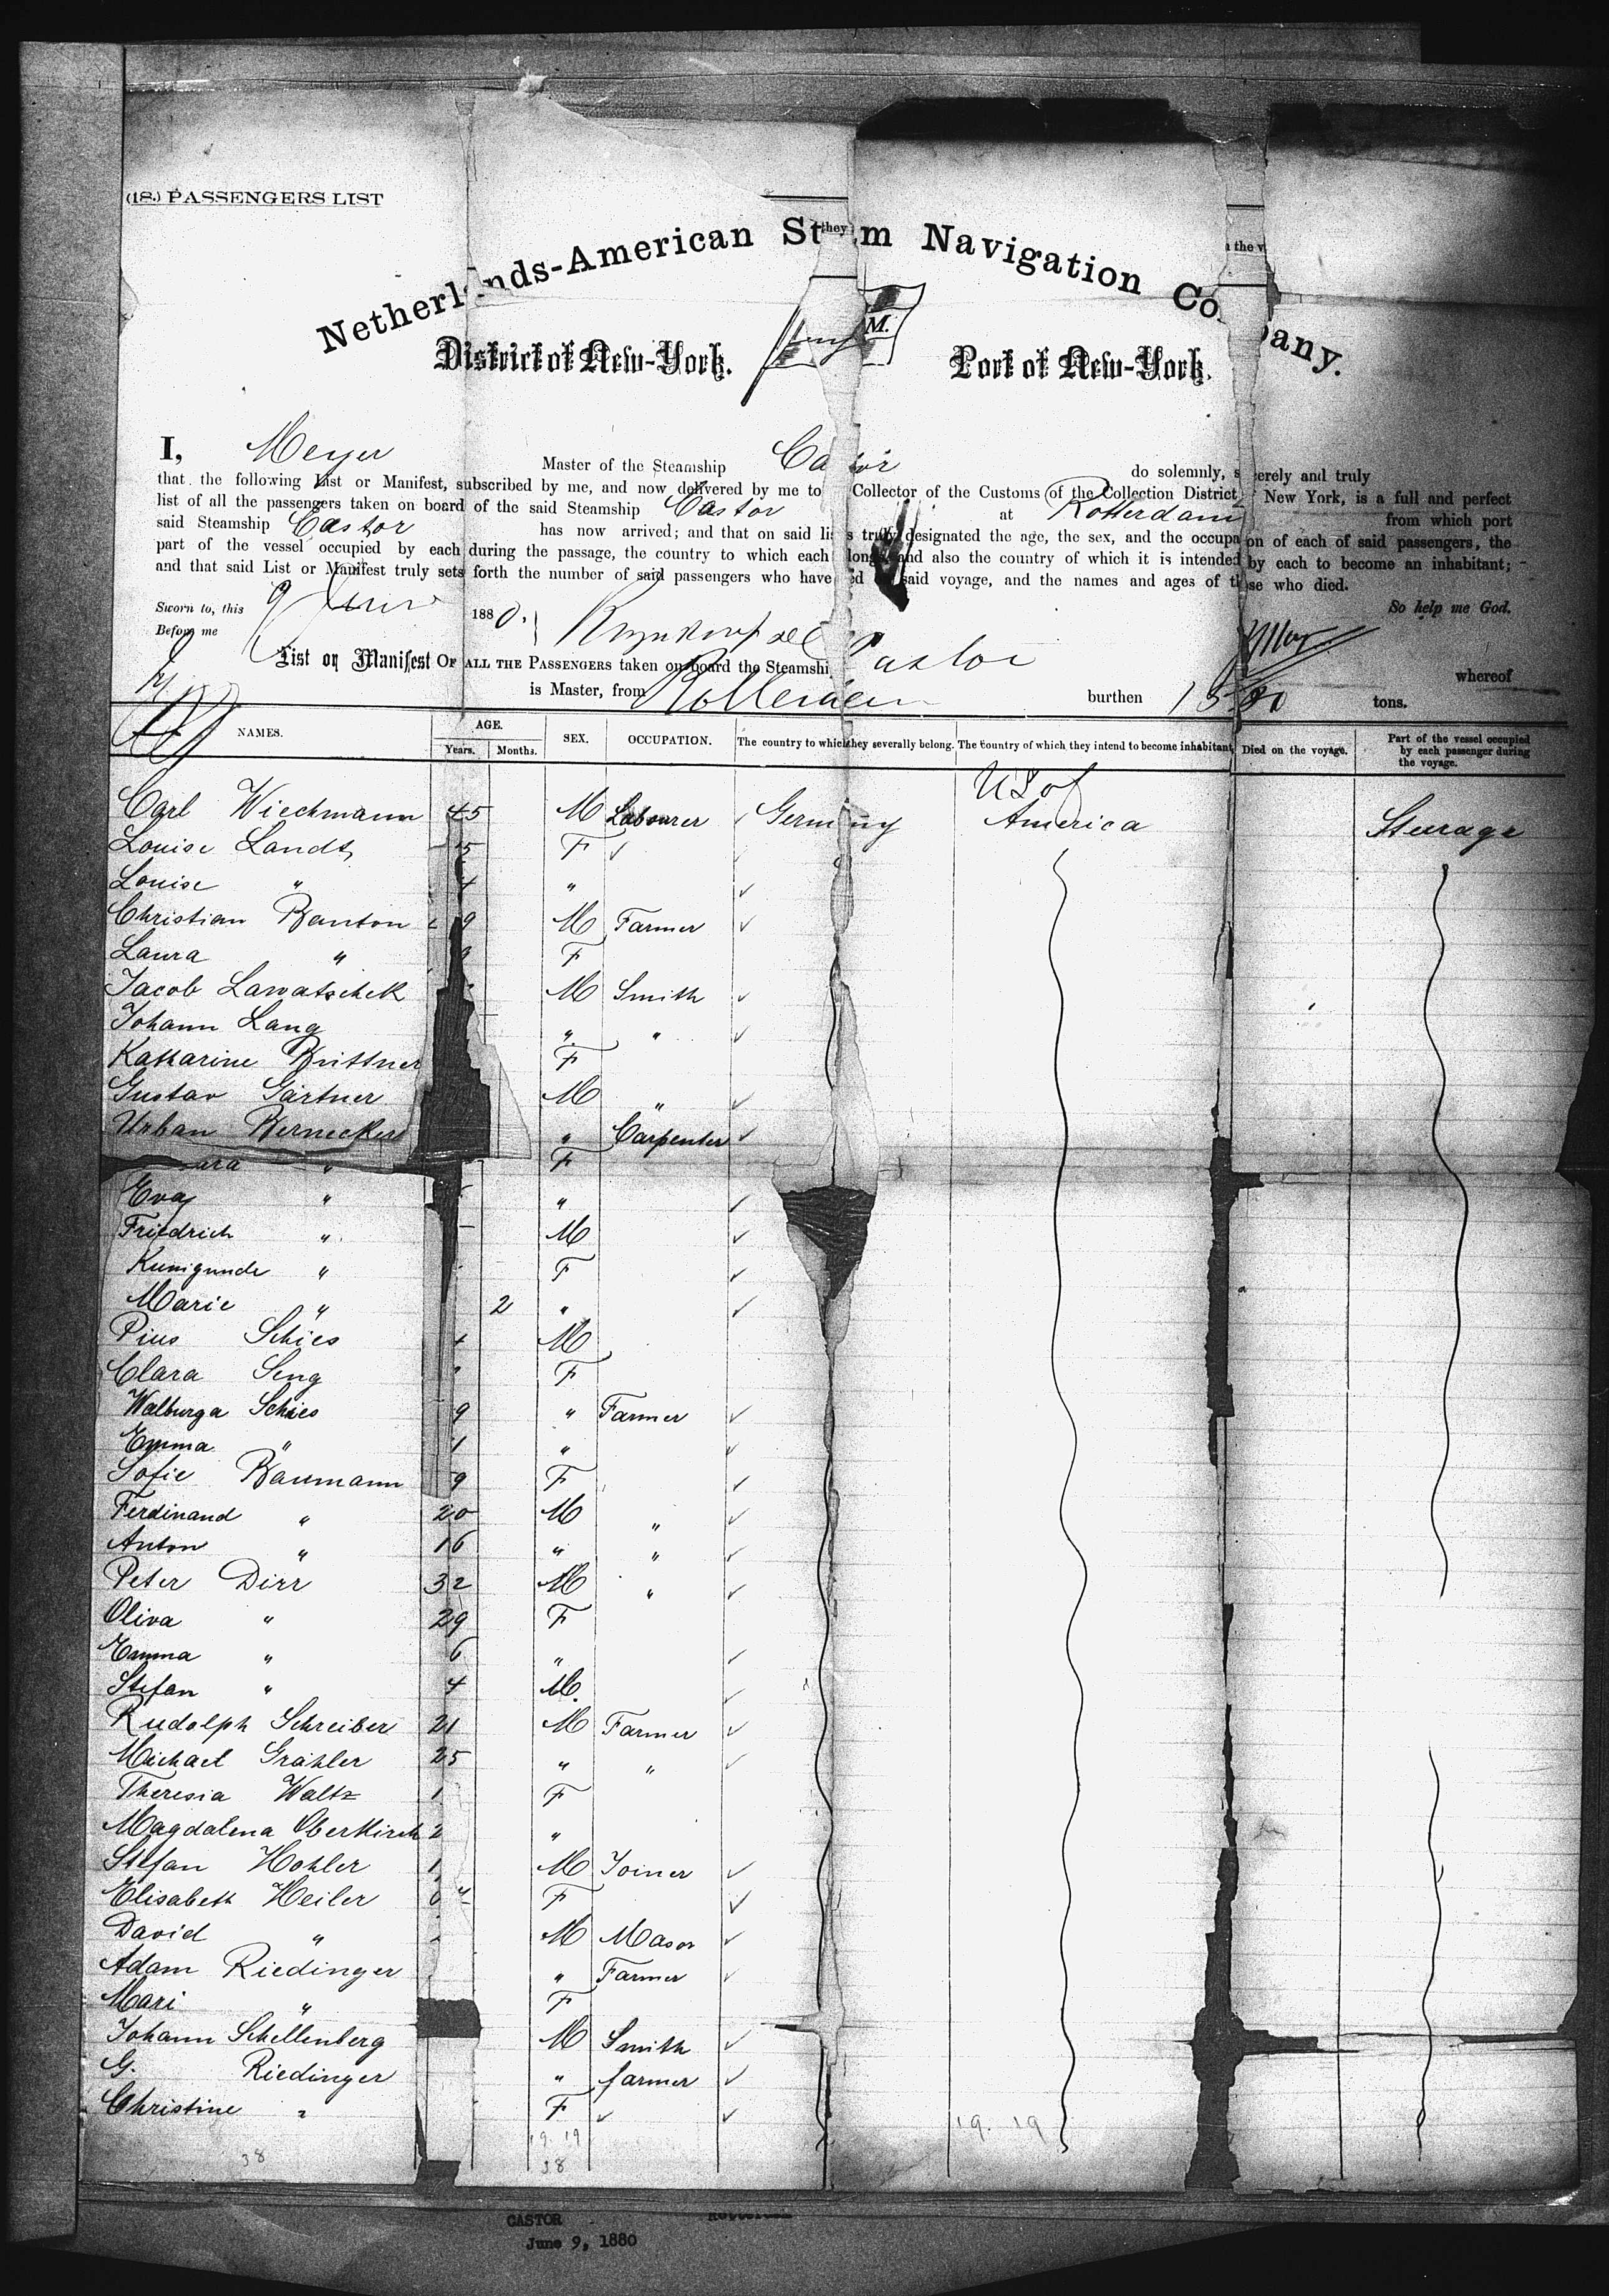 (18.) PASSENGERS LIST
Netherlands-American Steam Navigation Company.
they
the v
M.
District of New-York. Port of New-York.
I, Meyer Master of the Steamship Castor do solemnly, sincerely and truly
that the following List or Manifest, subscribed by me, and now delivered by me to Collector of the Customs of the Collection District New York, is a full and perfect
list of all the passengers taken on board of the said Steamship Castor at Rotterdam from which port
said Steamship Castor has now arrived; and that on said list is truly designated the age, the sex, and the occupation of each of said passengers, the
part of the vessel occupied by each during the passage, the country to which each belongs, and also the country of which it is intended by each to become an inhabitant;
and that said List or Manifest truly sets forth the number of said passengers who have died said voyage, and the names and ages of those who died.
So help me God.
Sworn to, this 9 June 1880.
Before me
List or Manifest OF ALL THE PASSENGERS taken on board the Steamship Castor whereof
is Master, from Rotterdam burthen tons.
NAMES. AGE. Years. Months. SEX. OCCUPATION. The country to which they severally belong. The country of which they intend to become inhabitant Died on the voyage. Part of the vessel occupied by each passenger during the voyage.
U S of
Carl Wiechmann 45 M Labourer Germany America Steerage
Louise Landt 5 F
Louise " 4 "
Christian Banton 9 M Farmer
Laura " F
Jacob Lawatschek M Smith
Johann Lang " "
Katharine Brittner F
Gustav Gärtner M "
Urban Bernecker " Carpenter
ara " F
Eva " "
Friedrich " M
Kunigunde " F
Marie " 2 "
Pius Schies M
Clara Seng F
Walburga Schies 9 " Farmer
Emma " 1 "
Sofie Baumann 9 F
Ferdinand " 20 M "
Anton " 16 " "
Peter Dirr 32 M "
Oliva " 29 F
Emma " 6 "
Stefan " 4 M.
Rudolph Schreiber 21 M Farmer
Michael Grähler 25 " "
Theresia Waltz 1 F
Magdalena Oberkirch 2 "
Stefan Hohler 1 M Joiner
Elisabeth Heiler F
David " M Mason
Adam Riedinger " Farmer
Mari " F
Johann Schellenberg M Smith
G. Riedinger " farmer
Christine " F
19. 19 19. 19
38 38
CASTOR Rotterdam
June 9, 1880